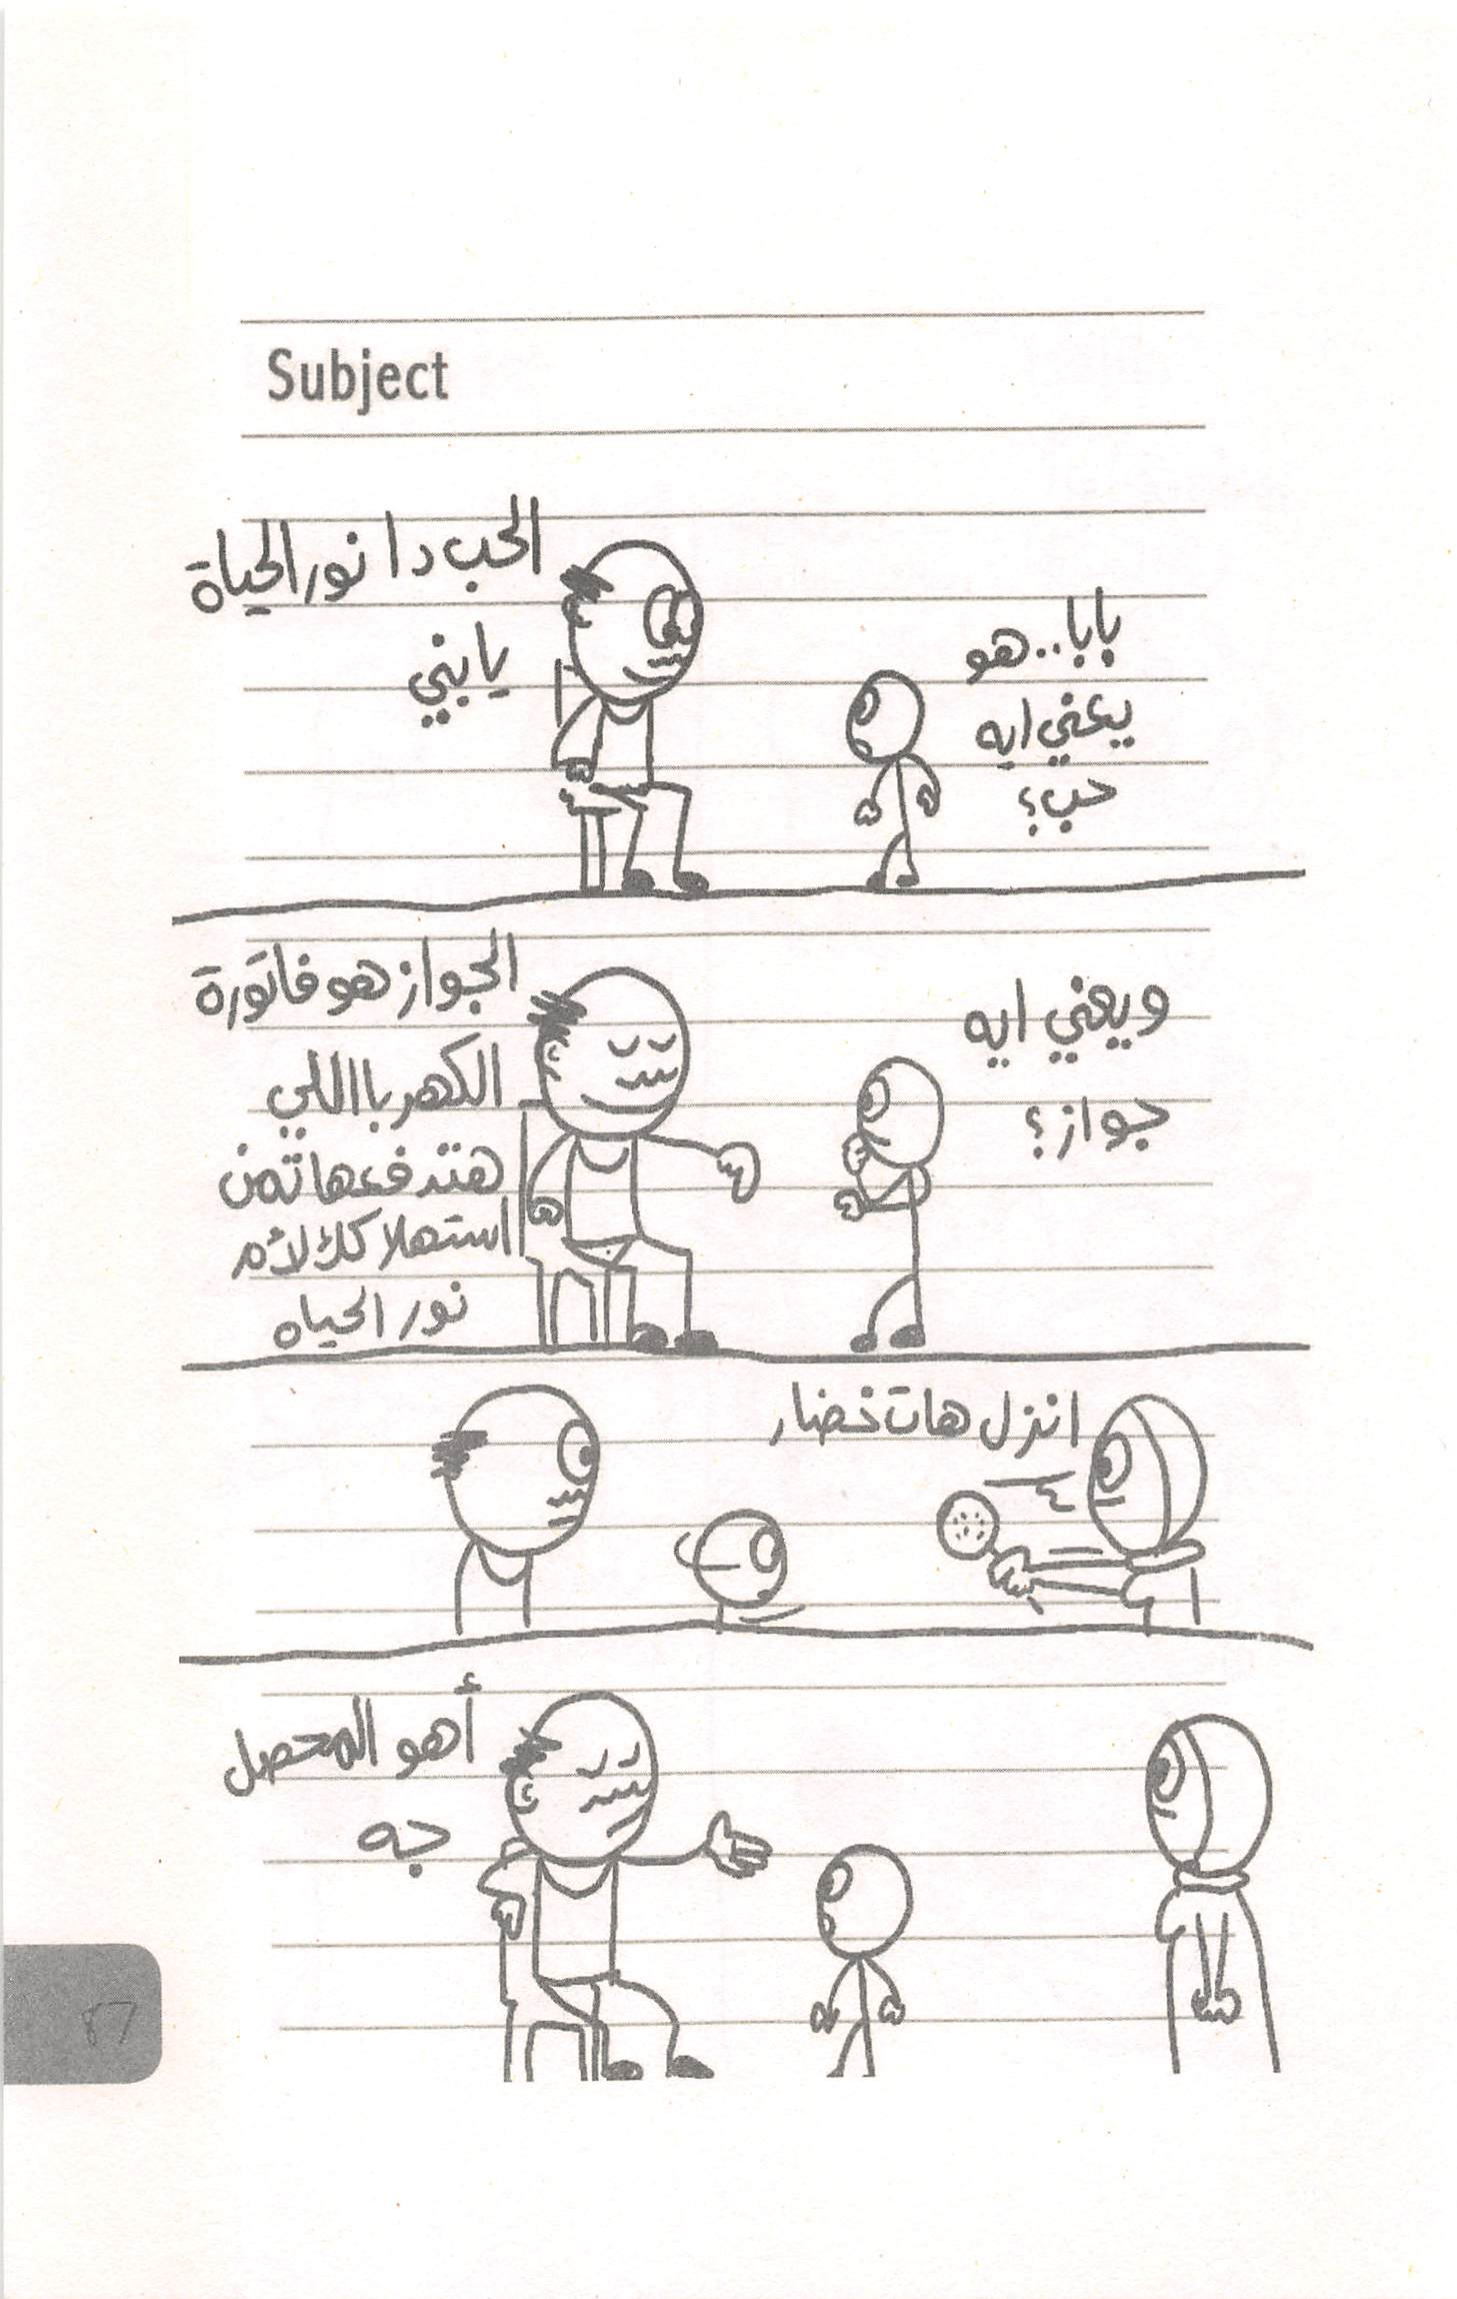 Subject
بابا.. هو
يعني ايه
حب؟
الحب دا نور الحياة
يا بني
ويعني ايه
جواز؟
الجواز هو فاتورة
الكهربا اللي
هتدفعها تمن
استهلاكك لأم
نور الحياه
انزل هات خضار
أهو المحصل
جه